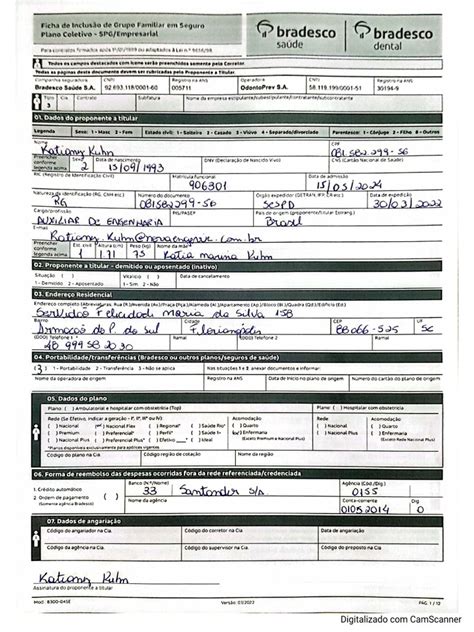 Ficha de Inclusão de Grupo Familiar em Seguro
Plano Coletivo - SPG/Empresarial
bradesco saúde
bradesco dental
Para contratos firmados após 01/01/1999 ou adaptados à Lei nº 9656/98
Todos os campos destacados com ícone serão preenchidos somente pelo Corretor.
Todas as páginas deste documento devem ser rubricadas pelo Proponente a Titular.
Companhia seguradora CNPJ Registro na ANS Operadora CNPJ Registro na ANS
Bradesco Saúde S.A. 92.693.118/0001-60 005711 OdontoPrev S.A. 58.119.199/0001-51 30194-9
Tipo Cia Contrato Subfatura Nome da empresa estipulante/subestipulante/contratante/subcontratante
3
01. Dados do proponente a titular
Legenda Sexo: 1 - Masc 2 - Fem Estado civil: 1 - Solteiro 2 - Casado 3 - Viúvo 4 - Separado/divorciado Parentesco: 1 - Cônjuge 2 - Filho 8 - Outros
Nome CPF
Katiany Kuhn 081.582.299-56
Preencher conforme legenda Sexo Data de nascimento DNV (Declaração de Nascido Vivo) CNS (Cartão Nacional de Saúde)
2 13/09/1993
RIC (Registro de Identificação Civil) Matrícula funcional Data de admissão
906301 15/05/2024
Natureza da identificação (RG, CNH etc.) Número do documento Órgão expedidor (DETRAN, IFP, CR etc.) Data de expedição
RG 081582299-56 SESPD 30/03/2022
Cargo/profissão PIS/PASEP País de origem (proponente/titular estrang.)
AUXILIAR DE ENGENHARIA Brasil
E-mail
Preencher conforme legenda Est. civil Altura (cm) Peso (kg) Nome da mãe
1 1.71 75 Katia marina Kuhn
02. Proponente a titular - demitido ou aposentado (inativo)
Situação ( ) Vitalício ( ) Data de cancelamento
1 - Demitido 2 - Aposentado 1 - Sim 2 - Não
03. Endereço Residencial
Servidão Felicidade Maria da Silva 158
Bairro Cidade CEP UF
Armacao do P. do sul Florianópolis 88066-525 SC
(DDD) Telefone 1 (DDD) Telefone 2
48 999582030
04. Portabilidade/transferências (Bradesco ou outros planos/seguros de saúde)
(3) 1 - Portabilidade 2 - Transferência 3 - Não se aplica Nas situações 1 e 2 anexar documentos e informar:
Nome da operadora de origem Registro na ANS Data de início no plano de origem Número do cartão do plano de origem
05. Dados do plano
Plano ( ) Ambulatorial e hospitalar com obstetrícia (Top) Plano ( ) Hospitalar com obstetrícia
Acomodação Rede Acomodação
( ) Nacional ( ) Quarto
( ) Nacional Plus ( ) Enfermaria
(Exceto Premium e Nacional Plus) (Exceto Rede Nacional Plus)
Código do plano na Cia Código região de cotação Nome do cartão
06. Forma de reembolso das despesas ocorridas fora da rede referenciada/credenciada
1. Crédito automático Banco (Nº/Nome) Agência (Cód./Dig.)
33 Santander S/A 0155
2. Ordem de pagamento Nome da agência Conta-corrente Dig
(Somente agência Bradesco) 01052014 0
07. Dados de angariação
Código do angariador na Cia Código do corretor na Cia Data de angariação
Código do supervisor na Cia Código do preposto na Cia
Katiany Kuhn
Assinatura do proponente a titular
Mod.: 8300-045E Versão: 03/2022 PÁG. 1 / 12
Digitalizado com CamScanner